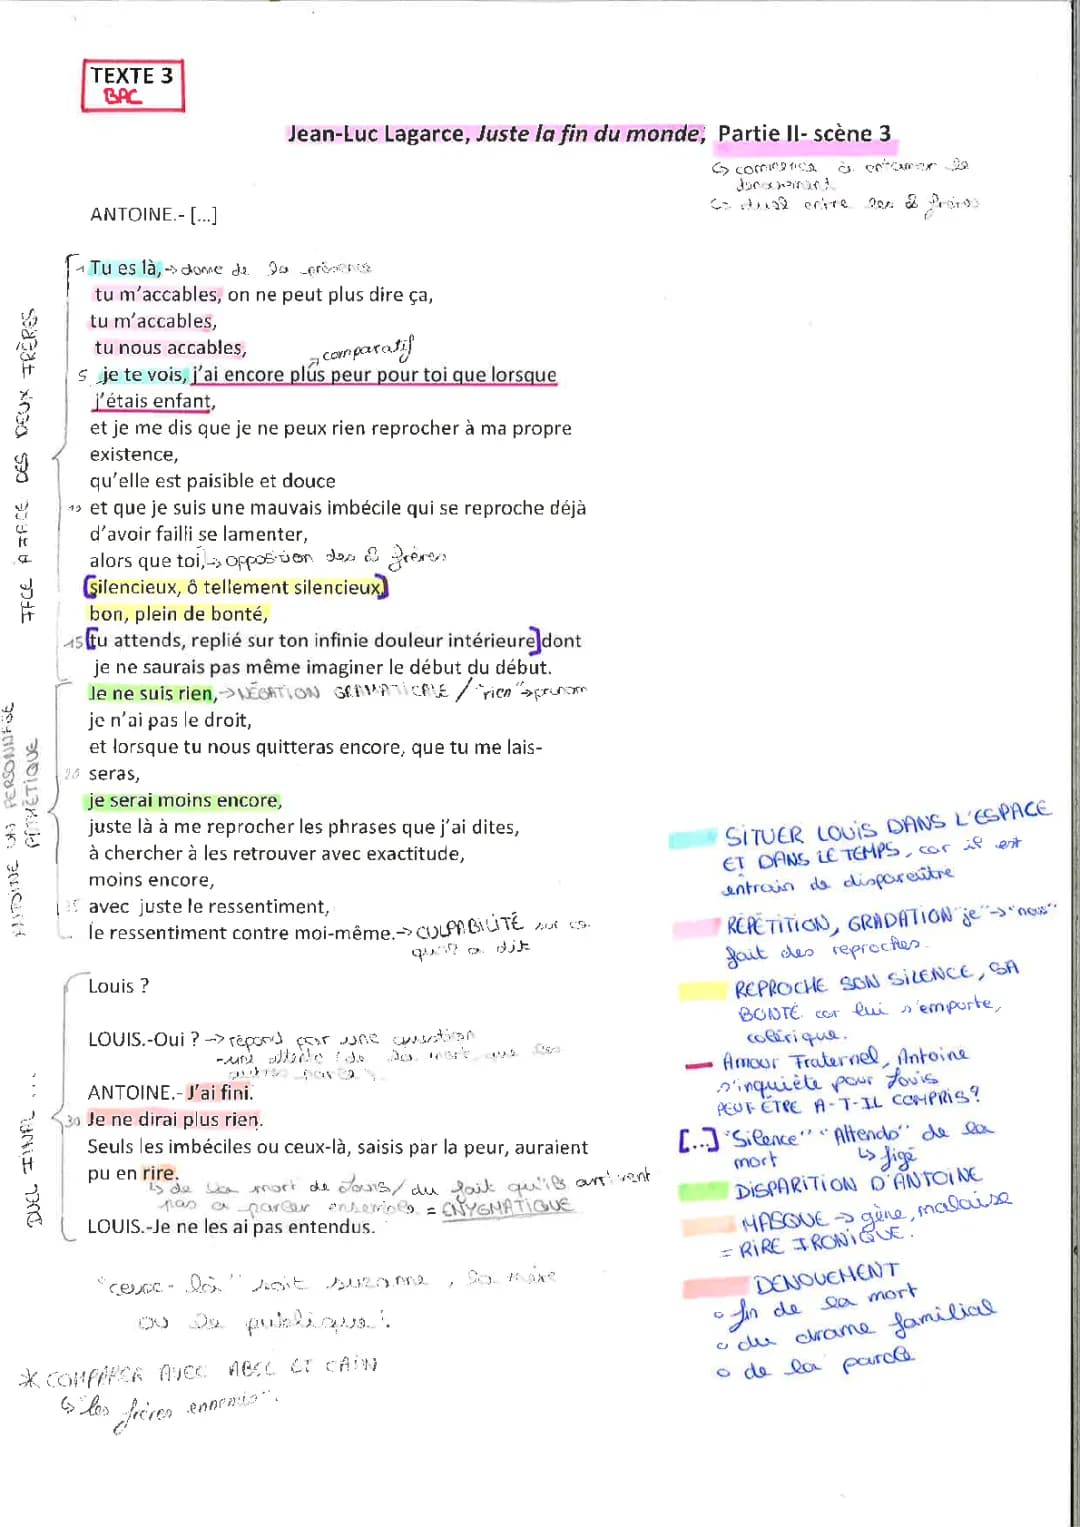 TEXTE 3
BAC
Jean-Luc Lagarce, Juste la fin du monde, Partie II- scène 3
↳ commence à entamer le
dénouement
↳ duel entre les 2 frères
ANTOINE.- [...]
1 Tu es là, → donne de la présence
tu m'accables, on ne peut plus dire ça,
tu m'accables,
tu nous accables,
comparatif
5 je te vois, j'ai encore plus peur pour toi que lorsque
j'étais enfant,
et je me dis que je ne peux rien reprocher à ma propre
existence,
qu'elle est paisible et douce
10 et que je suis une mauvais imbécile qui se reproche déjà
d'avoir failli se lamenter,
alors que toi, ↳ opposition des 2 frères
[silencieux, ô tellement silencieux]
bon, plein de bonté,
15 [tu attends, replié sur ton infinie douleur intérieure] dont
je ne saurais pas même imaginer le début du début.
FACE A FACE DES DEUX FRÈRES
Je ne suis rien, → NÉGATION GRAMATICALE / "rien" → pronom
je n'ai pas le droit,
et lorsque tu nous quitteras encore, que tu me lais-
20 seras,
je serai moins encore,
juste là à me reprocher les phrases que j'ai dites,
à chercher à les retrouver avec exactitude,
moins encore,
25 avec juste le ressentiment,
le ressentiment contre moi-même. → CULPABILITÉ sur ce
qu'il a dit
ANTOINE UN PERSONNAGE
PATHÉTIQUE
Louis ?
LOUIS.-Oui ? → répond par une question
autres
ANTOINE.- J'ai fini.
30 Je ne dirai plus rien.
Seuls les imbéciles ou ceux-là, saisis par la peur, auraient
pu en rire.
↳ de la mort de Louis / du fait qu'ils arrivent
pas à parler ensemble = ENYGMATIQUE
LOUIS.-Je ne les ai pas entendus.
DUEL FINAL ...
"ceux-là" soit suzanne, la mère
ou le publique.
* COMPARER AVEC ABEL ET CAÏN
↳ "les frères ennemis".
SITUER LOUIS DANS L'ESPACE
ET DANS LE TEMPS, car il est
entrain de disparaître
RÉPÉTITION, GRADATION "je" → "nous"
fait des reproches.
REPROCHE SON SILENCE, SA
BONTÉ car lui s'emporte,
colérique.
Amour Fraternel, Antoine
s'inquiète pour Louis
PEUT ÊTRE A-T-IL COMPRIS?
[...] "Silence" "Attends" de la
mort ↳ figé
DISPARITION D'ANTOINE
MASQUE → gêne, malaise
= RIRE IRONIQUE.
DENOUEMENT
o fin de la mort
o du drame familial
o de la parole